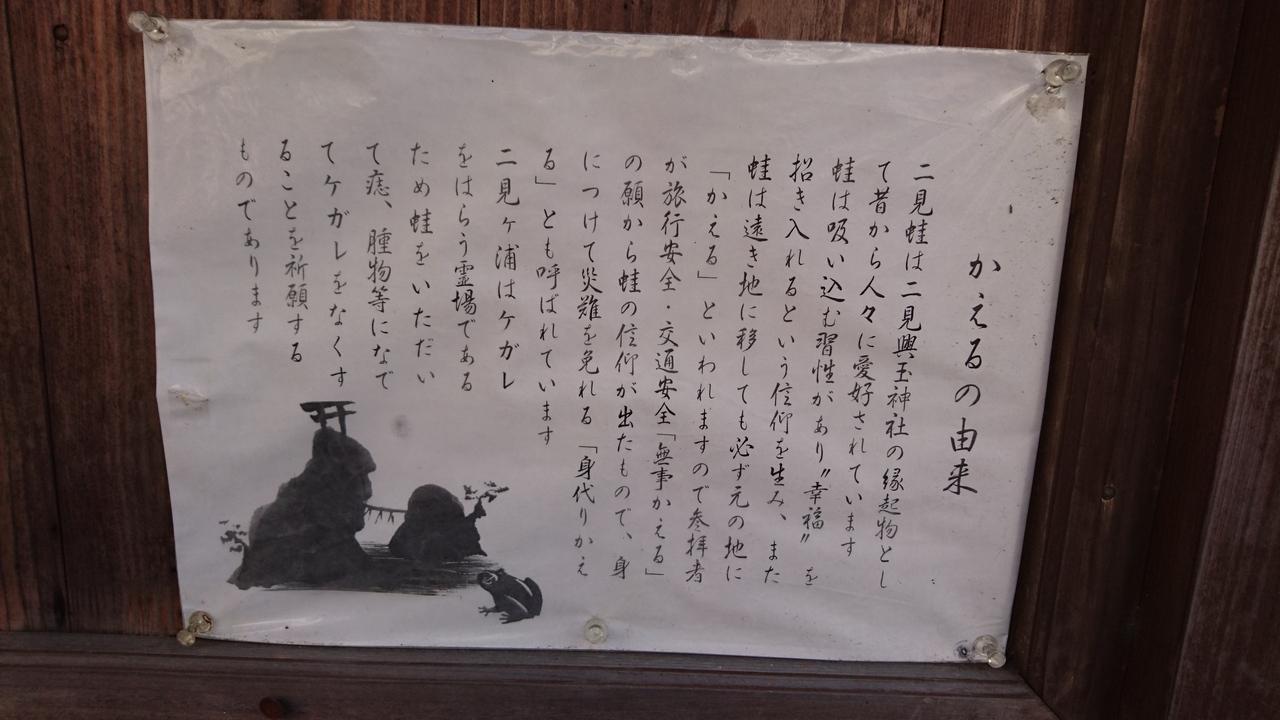 かえるの由来
二見蛙は二見興玉神社の縁起物とし
て昔から人々に愛好されています
蛙は吸い込む習性があり〃幸福〃を
招き入れるという信仰を生み、また
蛙は遠き地に移しても必ず元の地に
「かえる」といわれますので参拝者
が旅行安全・交通安全「無事かえる」
の願から蛙の信仰が出たもので、身
につけて災難を免れる「身代りかえ
る」とも呼ばれています
二見ヶ浦はケガレ
をはらう霊場である
ため蛙をいただい
て痣、腫物等になで
てケガレをなくす
ることを祈願する
ものであります